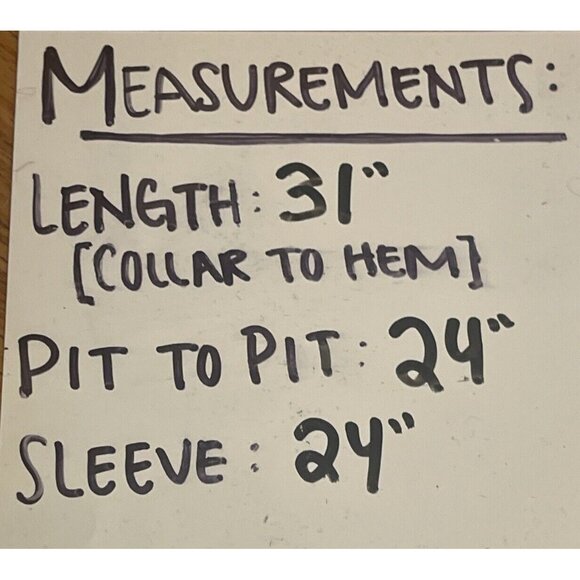 MEASUREMENTS:
LENGTH: 31"
[COLLAR TO HEM]
PIT TO PIT: 24"
SLEEVE: 24"